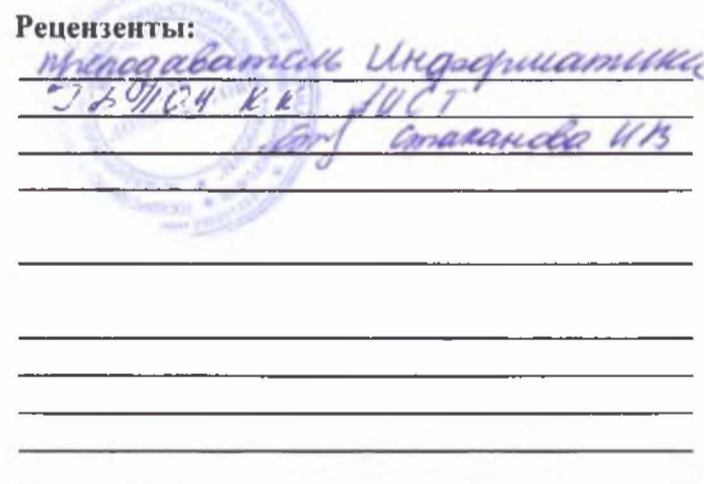 Рецензенты:
преподаватель Информатики
ГБПОУ КК
Стаканова ИВ